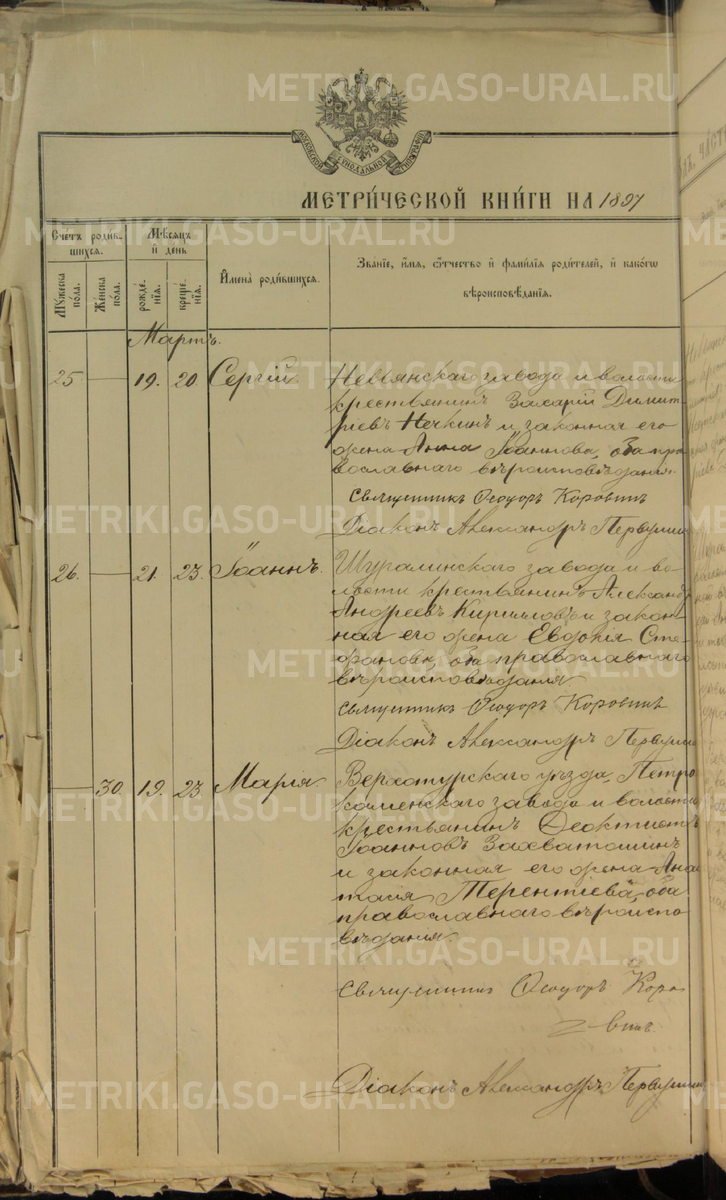 МОСКОВСКОЙ СѴНОДАЛЬНОЙ ТИПОГРАФІИ
МЕТРИ́ЧЕСКОЙ КНИ́ГИ НА 1897
Сче́тъ роди́вшихся.
Мꙋ́жеска по́ла.
Же́нска по́ла.
Мѣ́сяцъ и҆ де́нь
рожде́нїѧ.
креще́нїѧ.
И҆мена̀ роди́вшихсѧ.
Зва́нїе, и҆́мѧ, ѻ҆́тчество и҆ фами́лїѧ роди́телей, и҆ како́гѡ
вѣроисповѣ́данїѧ.
Мартъ.
25 — 19. 20 Сергій.
Невьянскаго завода и волости
крестьянинъ Захарій Димит
ріевъ Нечкинъ и законная его
жена Анна Іоаннова, оба пра
вославнаго вѣроисповѣданія.
Священникъ Ѳеодоръ Коровинъ
Діаконъ Александръ Первушинъ
26. — 21. 23. Іоаннъ.
Шуралинскаго завода и во
лости крестьянинъ Александръ
Андреевъ Кирилловъ и закон
ная его жена Евдокія Сте
фановна, оба православнаго
вѣроисповѣданія
Священникъ Ѳеодоръ Коровинъ
Діаконъ Александръ Первушинъ
— 30. 19. 23 Марія.
Верхотурскаго уѣзда, Петро
каменскаго завода и волости
крестьянинъ Ѳеоктистъ
Іоанновъ Захватошинъ
и законная его жена Анас
тасія Терентіева, оба
православнаго вѣроиспо
вѣданія.
Священникъ Ѳеодоръ Коро
винъ
Діаконъ Александръ Первушинъ
METRIKI.GASO-URAL.RU